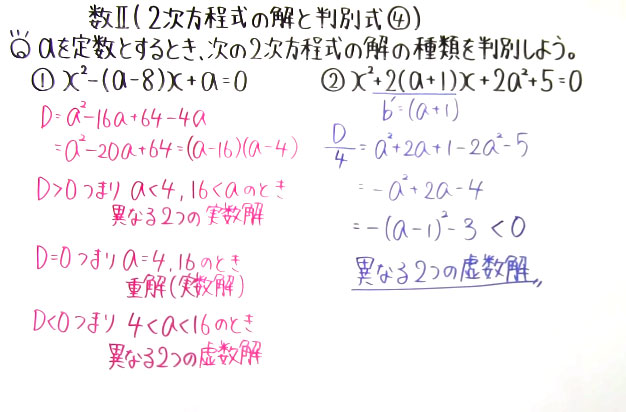 数Ⅱ(2次方程式の解と判別式④)
aを定数とするとき、次の2次方程式の解の種類を判別しよう。
① x²-(a-8)x+a=0
D=a²-16a+64-4a
=a²-20a+64=(a-16)(a-4)
D>0つまり a<4, 16<aのとき
異なる2つの実数解
D=0つまり a=4,16のとき
重解(実数解)
D<0つまり 4<a<16のとき
異なる2つの虚数解
② x²+2(a+1)x+2a²+5=0
b'=(a+1)
D/4=a²+2a+1-2a²-5
=-a²+2a-4
=-(a-1)²-3<0
異なる2つの虚数解〃